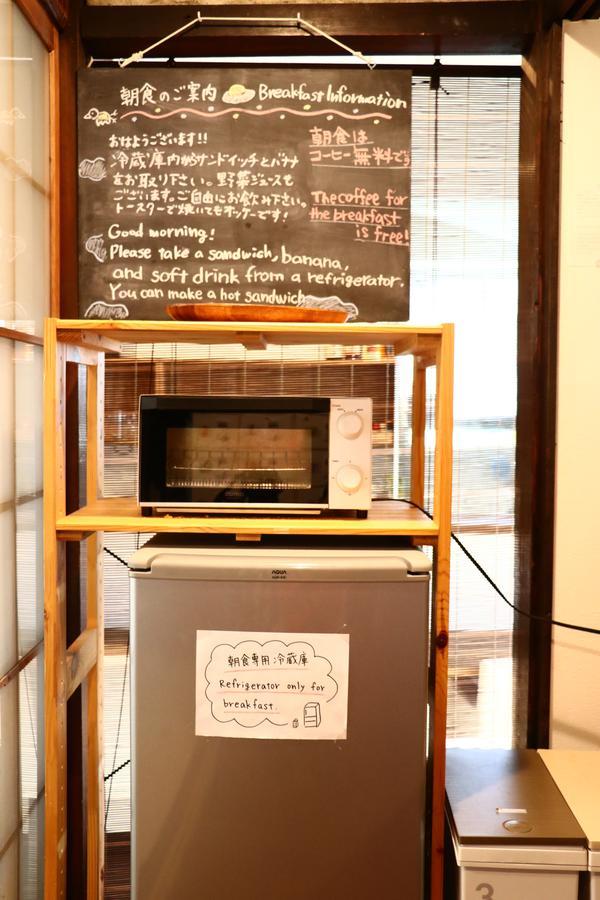 朝食のご案内 Breakfast Information
おはようございます!!
冷蔵庫内からサンドイッチとバナナ
をお取り下さい。野菜ジュースも
ございます。ご自由にお飲み下さい。
トースターで焼いてもオッケーです!
朝食は
コーヒー無料です
The coffee for
the breakfast
is free!
Good morning!
Please take a sandwich, banana,
and soft drink from a refrigerator.
You can make a hot sandwich
AQUA
朝食専用冷蔵庫
Refrigerator only for
breakfast.
3